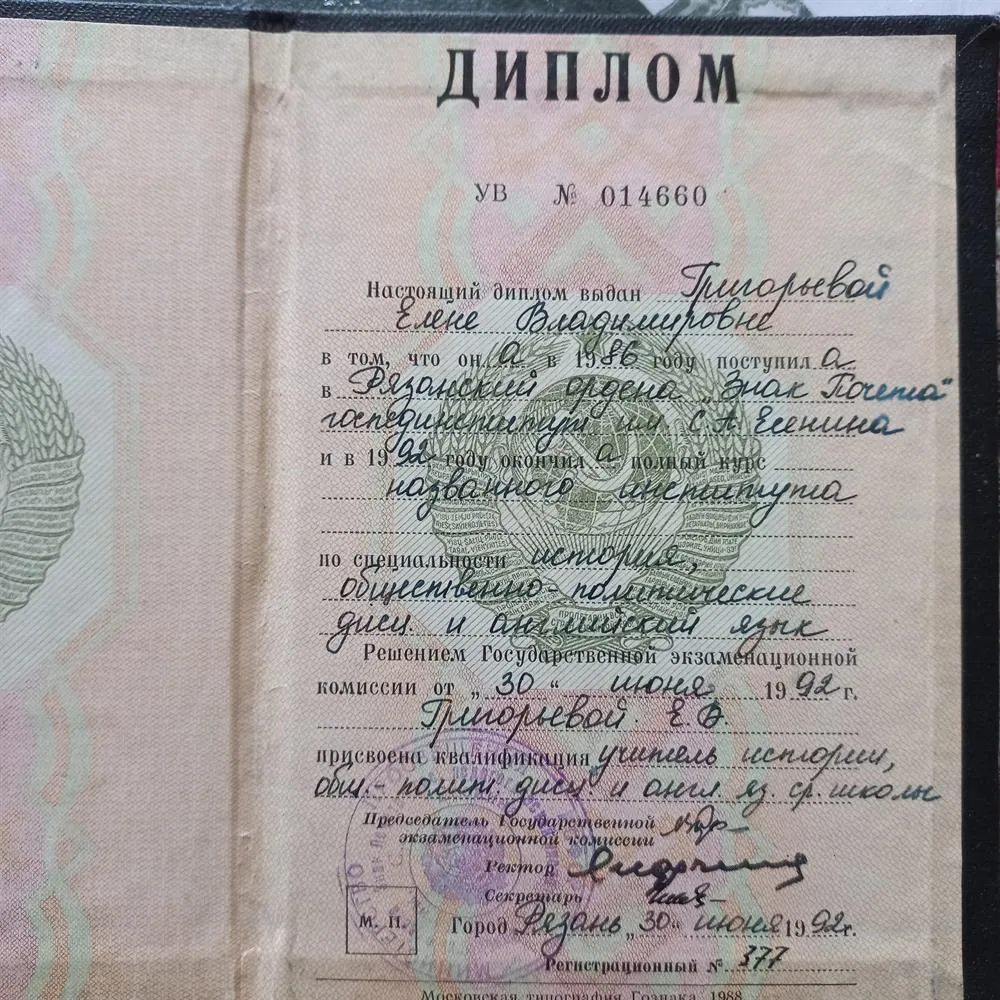 ДИПЛОМ
УВ № 014660
Настоящий диплом выдан Григорьевой
Елене Владимировне
в том, что он а в 1986 году поступил а
в Рязанский ордена „Знак Почета“
госпединститут им. С. А. Есенина
и в 1992 году окончил а полный курс
названного института
по специальности история,
общественно-политические
дисц. и английский язык
Решением Государственной экзаменационной
комиссии от „30“ июня 1992 г.
Григорьевой Е. В.
присвоена квалификация учитель истории,
общ.-полит. дисц. и англ. яз. ср. школы
Председатель Государственной
экзаменационной комиссии
Ректор
Секретарь
М. П.
Город Рязань „30“ июня 1992г.
Регистрационный № 377
Московская типография Гознака. 1988.